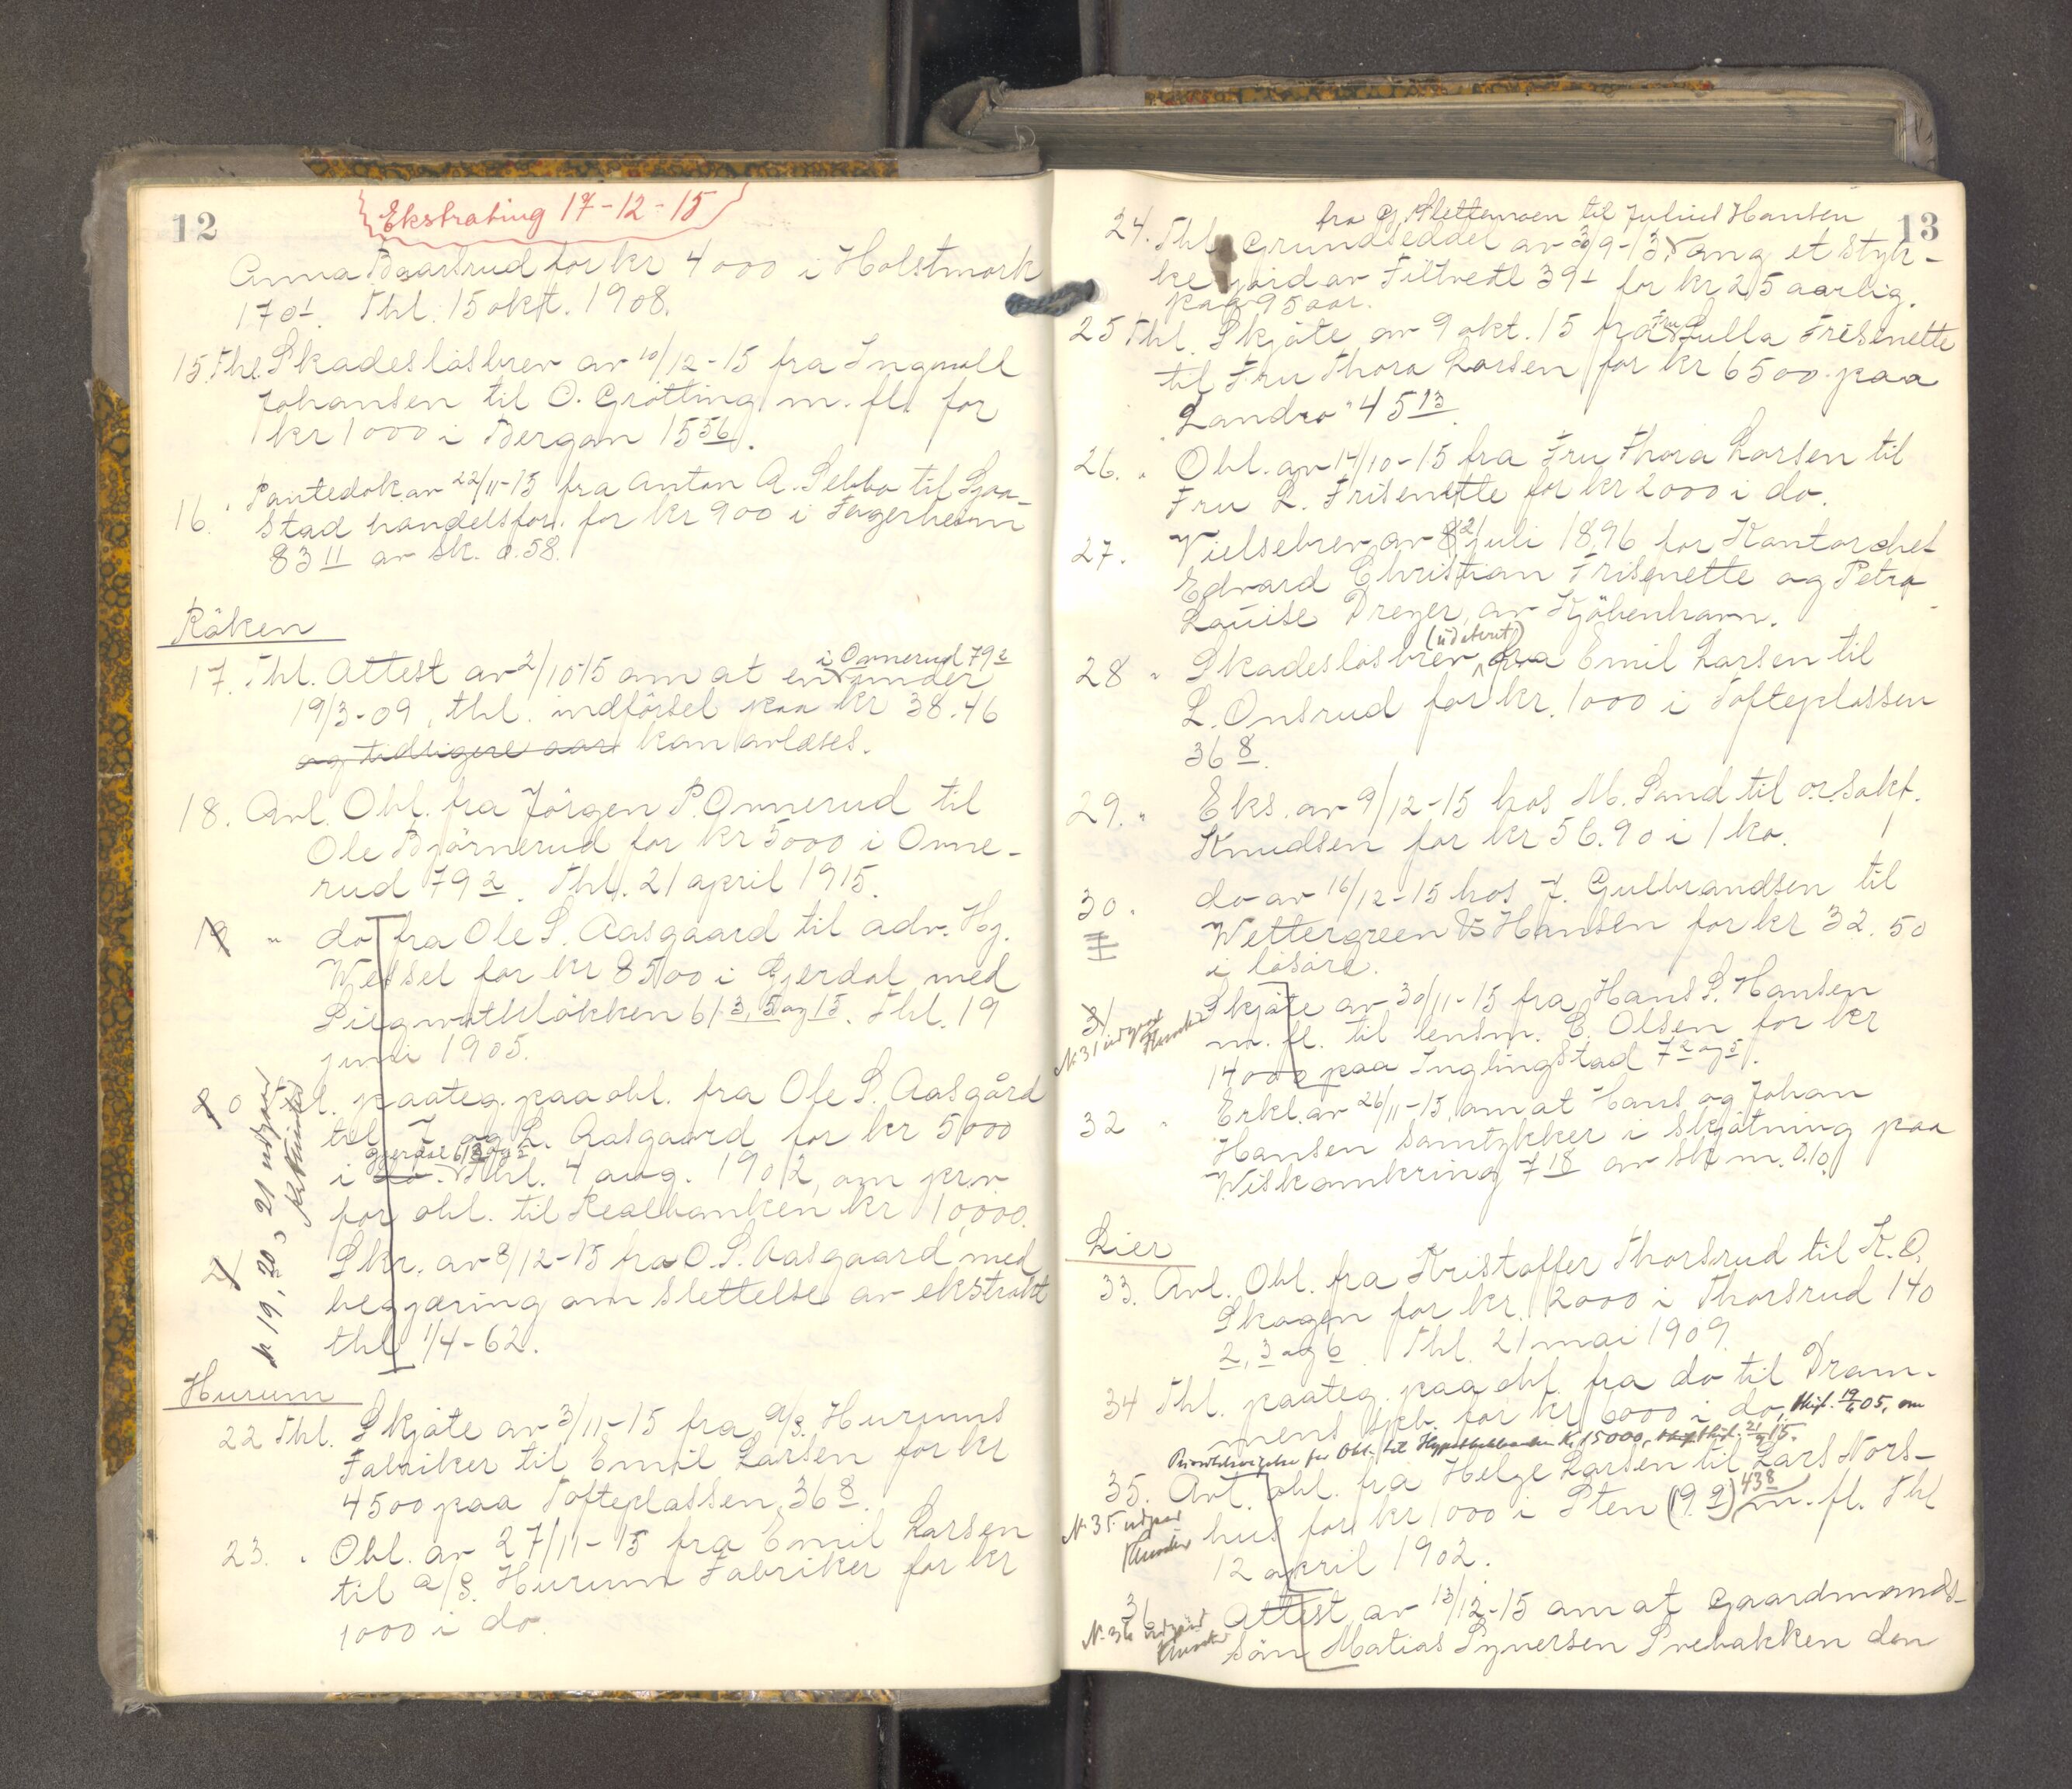 12
Ekstrating 17-12-15
Anna Baarsrud for kr 4000 i Holstmork
170 1. Thl. 15 okt. 1908.
15. Thl. Skadeslösbrev av 10/12-15 fra Ingvall
Johansen til O. Grötting m. fl. for
kr 1000 i Bergan 15 56.
16. " Pantedok. av 22/11-15 fra Anton A. Sebbo til Sjaa-
stad handelsfor. for kr 900 i Fagerheim
83 11 av sk. o. 58.
Röken
17. Thl. Attest av 2/10-15 om at en i Onnerud 79 2 under
19/3-09, thl. indförsel paa kr 38.46
og tidligere aar kan avlæses.
18. Avl. Obl. fra Jörgen P. Onnerud til
Ole Björnerud for kr 5000 i Onne-
rud 79 2. Thl. 21 april 1915.
19 " do fra Ole S. Aasgaard til adv. Hj.
Wessel for kr 8500 i Gjerdal med
61 3, 5 og 15. Thl. 19
juni 1905.
20 paateg. paa obl. fra Ole S. Aasgård
til J. og L. Aasgaard for kr 5000
i do. Thl. 4 aug. 1902, om pr.v
for obl. til Realbanken kr 10,000.
21 Skr. av 8/12-15 fra O. S. Aasgaard med
begjæring om slettelse av ekstrakt
thl 1/4-62.
N 19, 20, 21 utgaar
Hurum
22 Thl. Skjöte av 3/11-15 fra A/S. Hurums
Fabriker til Emil Larsen for kr
4500 paa Tofteplassen 36 8.
23. " Obl. av 27/11-15 fra Emil Larsen
til a/S. Hurum Fabriker for kr
1000 i do.
13
fra G. Slettemoen til Julius Hansen
24. Thl. Grundseddel av 3/9-13 ang et styk-
ke jord av Filtvedt 39 1 for kr 25 aarlig.
paa 95 aar.
25 Thl. Skjöte av 9 okt. 15 fra Fru Lulla Frisenette
til Fru Thora Larsen for kr 6500 paa
Landro 45 13.
26. " Obl. av 14/10-15 fra Fru Thora Larsen til
Fru L. Frisenette for kr 2000 i do.
27. Vielsebrev av 12 juli 1896 for Kontorchef
Edvard Christian Frisenette og Petra
Louise Dreyer, av Kjöbenhavn.
28 " Skadeslösbrev (udatert) fra Emil Larsen til
L. Onsrud for kr. 1000 i Tofteplassen
36 8.
29. " Eks. av 9/12-15 hos M. Sand til o.r.sakf.
Knudsen for kr 56.90 i 1 ko.
30. do av 16/12-15 hos J. Gulbrandsen til
Wettergreen & Hansen for kr 32.50
i lösöre.
31 Skjöte av 30/11-15 fra Hans S. Hansen
m. fl. til lensm. E. Olsen for kr
14000 paa Inglingstad 7 2 og 5.
N. 31 utgaar
32 " Erkl. av 26/11-15, om at Hans og Johan
Hansen samtykker i skjötning paa
7 18 av sk m. o. 10.
Lier
33. Avl. Obl. fra Kristoffer Thorsrud til K. O.
Skogen for kr. 2000 i Thorsrud 140
2, 3 og 6. Thl. 21 mai 1909.
34 Thl. paateg. paa obl. fra do til Dram-
mens spb. for kr 6000 i do, thgl. 19/6 05, om
Prioritetsvigelse for Obl. til Hypothekbanken Kr 15000, thgl. 21/9 15.
35. Avl. obl. fra Helge Larsen til Lars Nors-
hus for kr 1000 i Sten (9 9) 43 8 m. fl. Thl
12 april 1902.
N. 35 utgaar
36 Attest av 13/12-15 om at gaardmands-
sön Matias Syversen Svebakken den
N. 36 utgaar